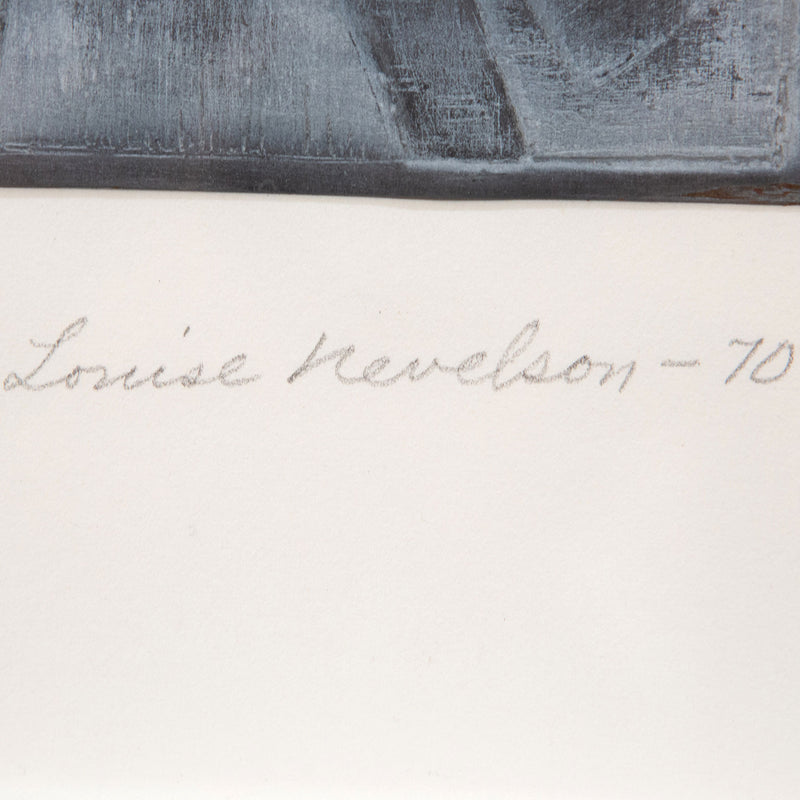 Louise Nevelson – 70